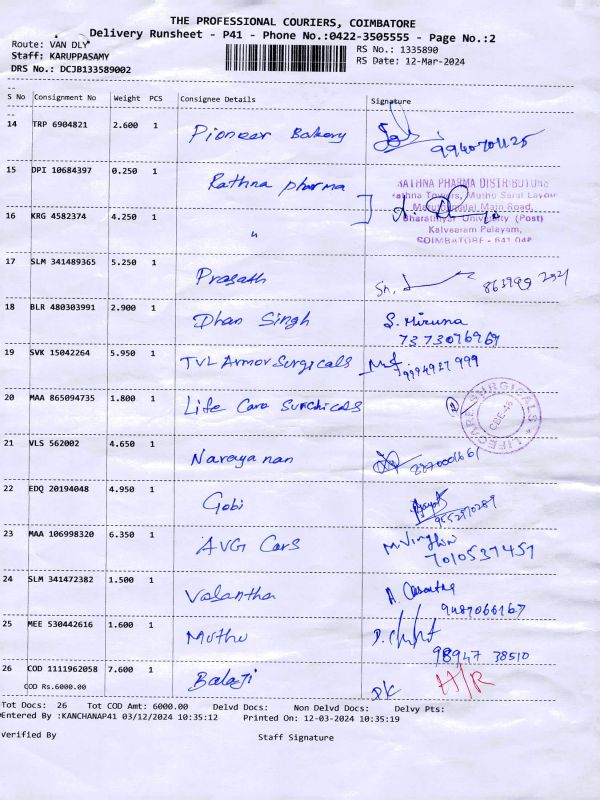 THE PROFESSIONAL COURIERS, COIMBATORE
Delivery Runsheet - P41 - Phone No.:0422-3505555 - Page No.:2
Route: VAN DLY
Staff: KARUPPASAMY
DRS No.: DCJB133589002
RS No.: 1335890
RS Date: 12-Mar-2024
S No Consignment No Weight PCS Consignee Details Signature
14 TRP 6904821 2.600 1 Pioneer Bakery
15 DPI 10684397 0.250 1 Rathna pharma
RATHNA PHARMA DISTRIBUTORS
Rathna Towers, Muthu Saral Layout
Main Road,
Bharathiyar University (Post)
Kalveeram Palayam,
COIMBATORE - 641 046
16 KRG 4582374 4.250 1 "
17 SLM 341489365 5.250 1 Prasath
18 BLR 480303991 2.900 1 Dhan Singh S. Miruna
7373076969
19 SVK 15042264 5.950 1 TVL Armor Surgicals 9994927999
20 MAA 865094735 1.800 1 Life Care
LIFECARE SURGICALS
CBE-46
21 VLS 562002 4.650 1 Narayanan
22 EDQ 20194048 4.950 1 Gobi
23 MAA 106998320 6.350 1 AVG Cars
7010537451
24 SLM 341472382 1.500 1 Vasantha
9487066167
25 MEE 530442616 1.600 1 Muthu
98947 38510
26 COD 1111962058 7.600 1 Balaji H/R
COD Rs.6000.00
Tot Docs: 26 Tot COD Amt: 6000.00 Delvd Docs: Non Delvd Docs: Delvy Pts:
Entered By :KANCHANAP41 03/12/2024 10:35:12 Printed On: 12-03-2024 10:35:19
Verified By Staff Signature